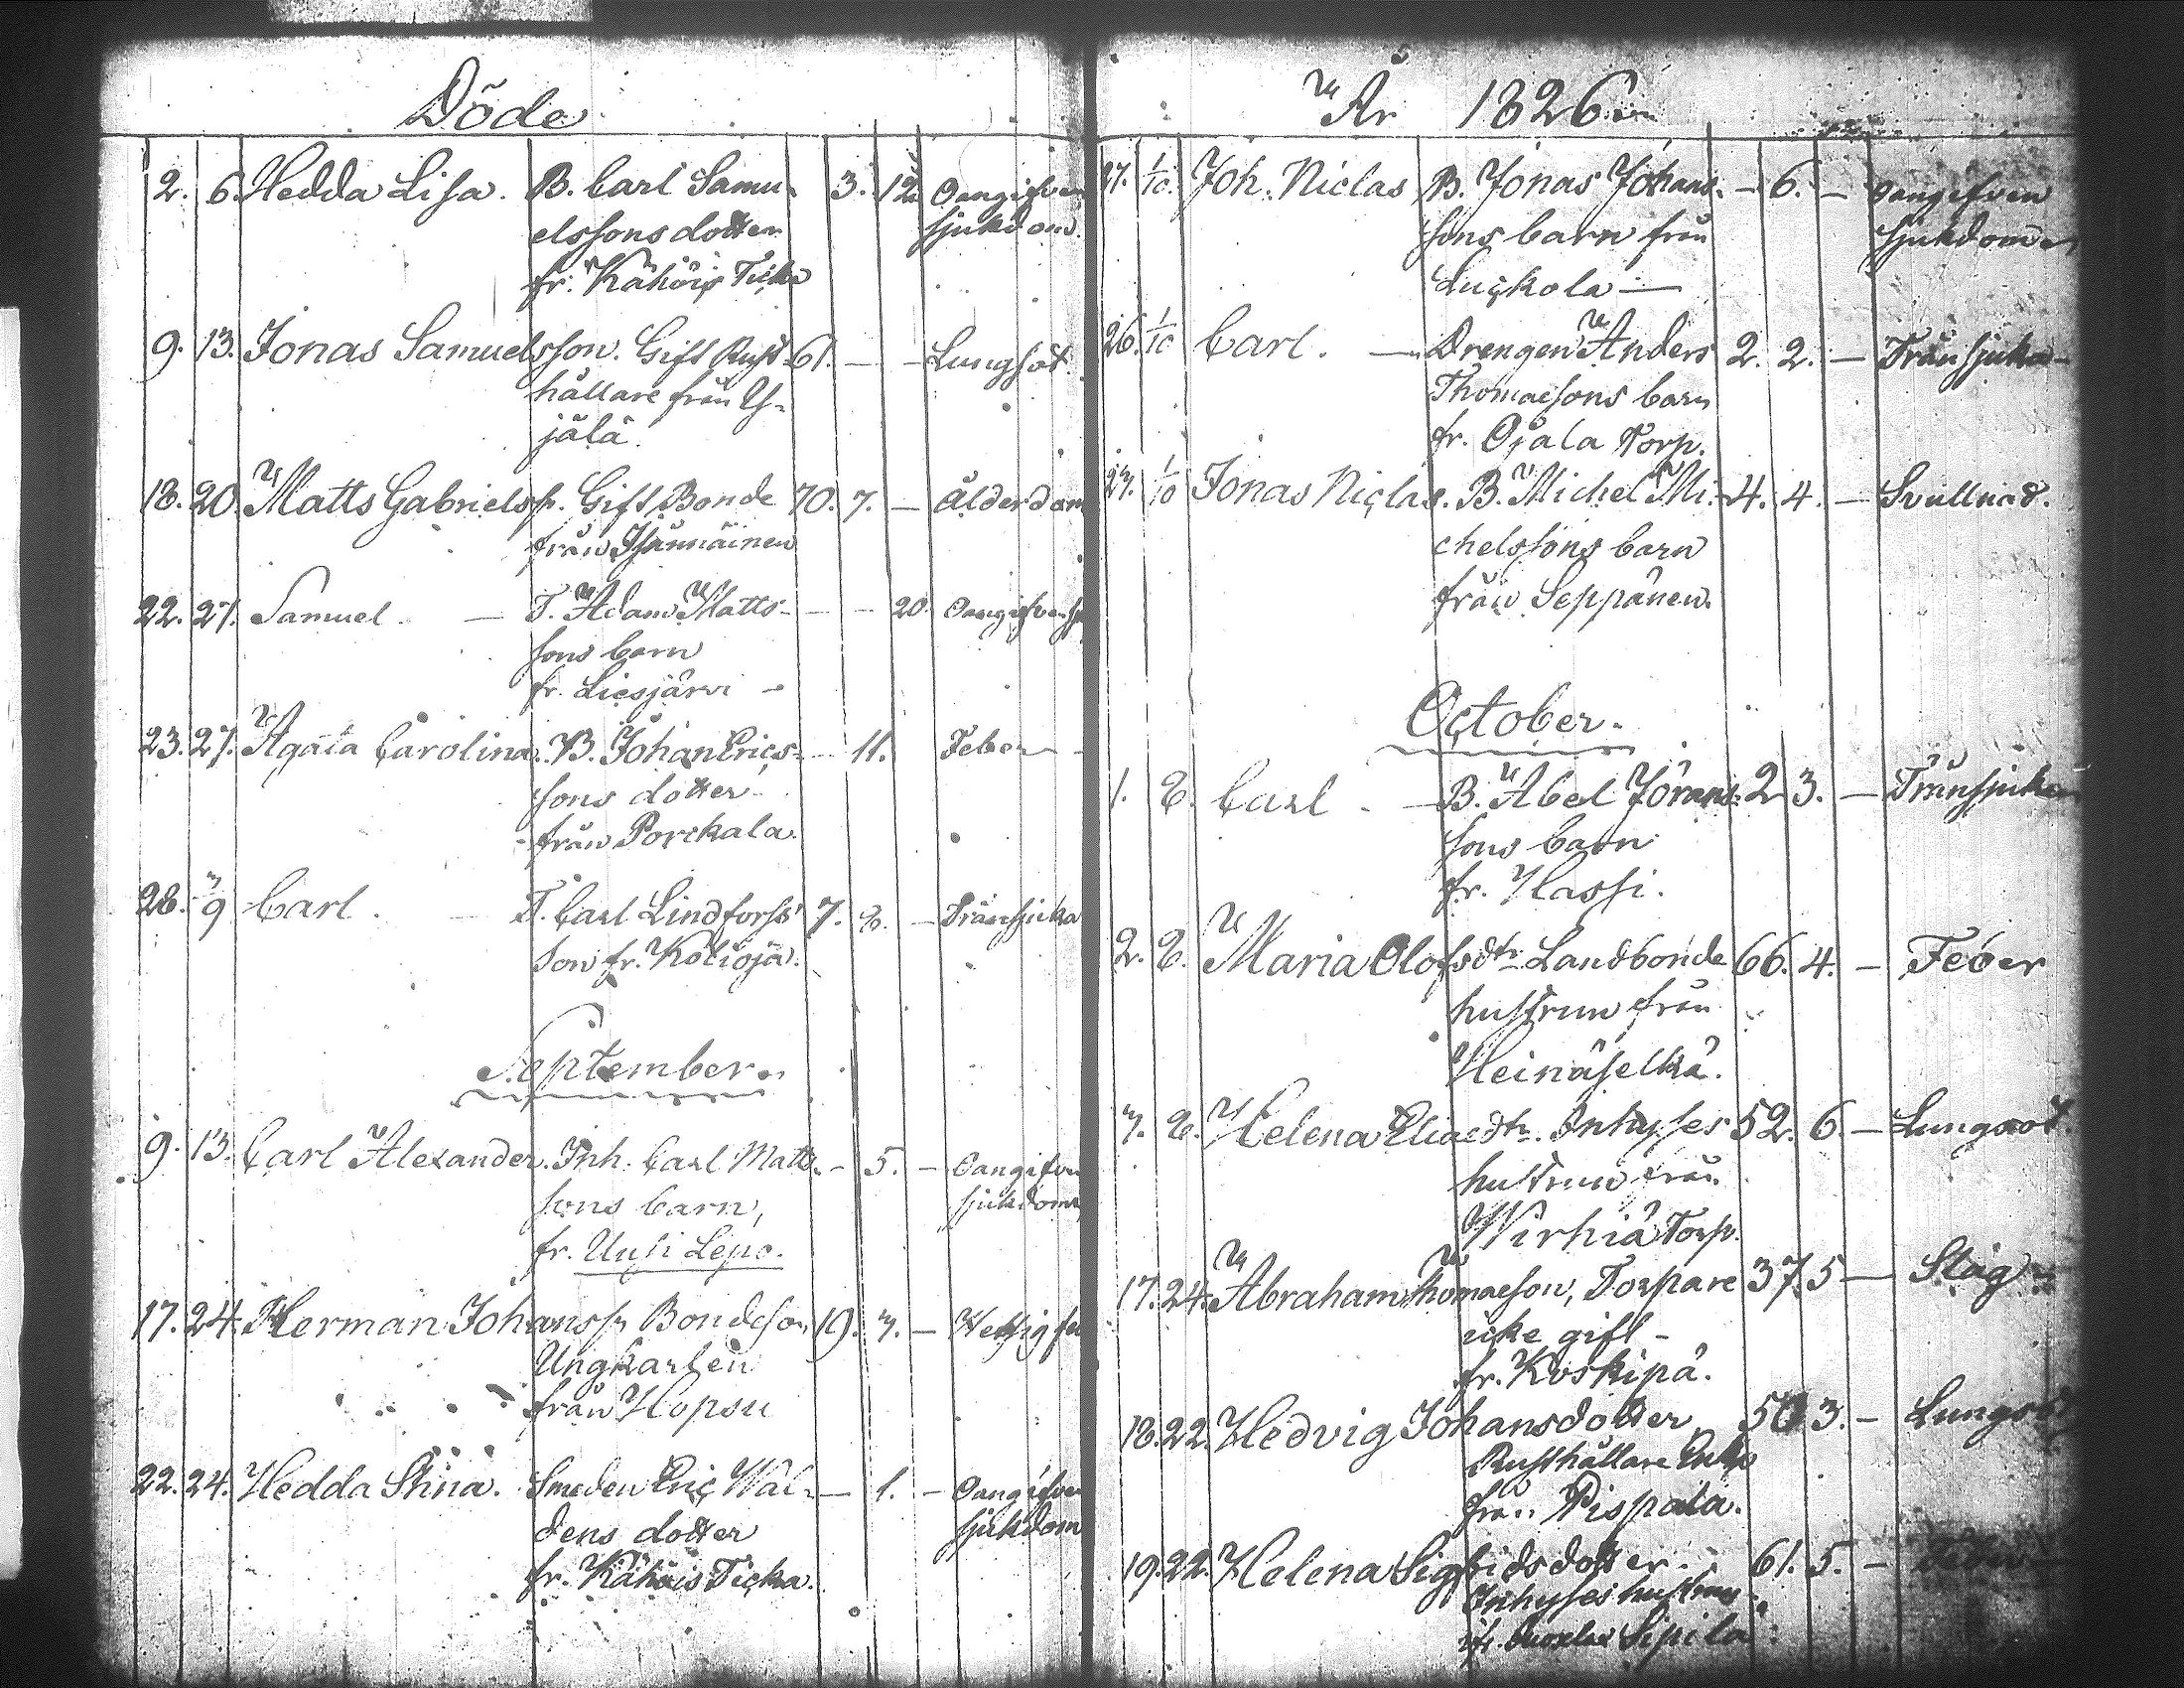 Döde
2. 6. Hedda Lisa. B. Carl Samu- 3. 12. Oangifven
elssons dotter sjukdom.
fr. Kähöis Ticka
9. 13. Jonas Samuelsson. Gift Rust- 61. — — Lungsot
hållare från Y-
jälä.
18. 20. Matts Gabrielss. Gift Bonde 70. 7. — Ålderdom
från
22. 27. Samuel. — T. Adam Matts- — — 20. Oangifven
sons barn
fr. Liesjärvi —
23. 27. Agata Carolina. B. Johan Erics- — 11. Feber —
sons dotter
från Porckala.
28. 3/9 Carl. — T. Carl Lindforss' 7. 8. — Trånsjuka
son fr. Kotioja.
September.
9. 13. Carl Alexander. Inh. Carl Matts- — 5. — Oangifven
sons barn, sjukdom
fr. Uusi Lepo.
17. 24. Herman Johanss. Bondeson, 19. 7. —
Ungkarlen
från Hopsu
22. 24. Hedda Stina. Smeden Eric Wal- — 1. — Oangifven
dens dotter sjukdom
fr. Kähöis Ticka.
År 1826.
27. 1/10. Joh. Niclas B. Jonas Johans- — 6. — oangifven
sons barn från sjukdom
Luskola —
26. 1/10 Carl. — Drengen Anders 2. 2. — Trånsjuka —
Thomaesons barn
fr. Ojala Torp.
27. 1/10 Jonas Niclas. B. Michel Mi- 4. 4. — Svullnad.
chelssons barn
från Seppänen.
October.
1. 8. Carl. — B. Abel Jörans- 2 3. — Trånsjuka
sons barn
fr. Hassi.
2. 8. Maria Olofsdtr Landbonde 66. 4. — Feber
hustrun från
Heinäselkä.
7. 8. Helena Eliaedtr. Inhyses 52. 6. — Lungsot.
hustrun från
Wirhiä Torp.
17. 24. Abraham Thomaeson, Torpare 37. 5 — Slag
icke gift —
fr. Koskipä.
18. 22. Hedvig Johansdotter, 50 3. — Lungsot
Rusthållare Enka
från Pispala.
19. 22. Helena Sigfridsdotter. 61. 5. —
Inhyses hustrun
fr. Sipila